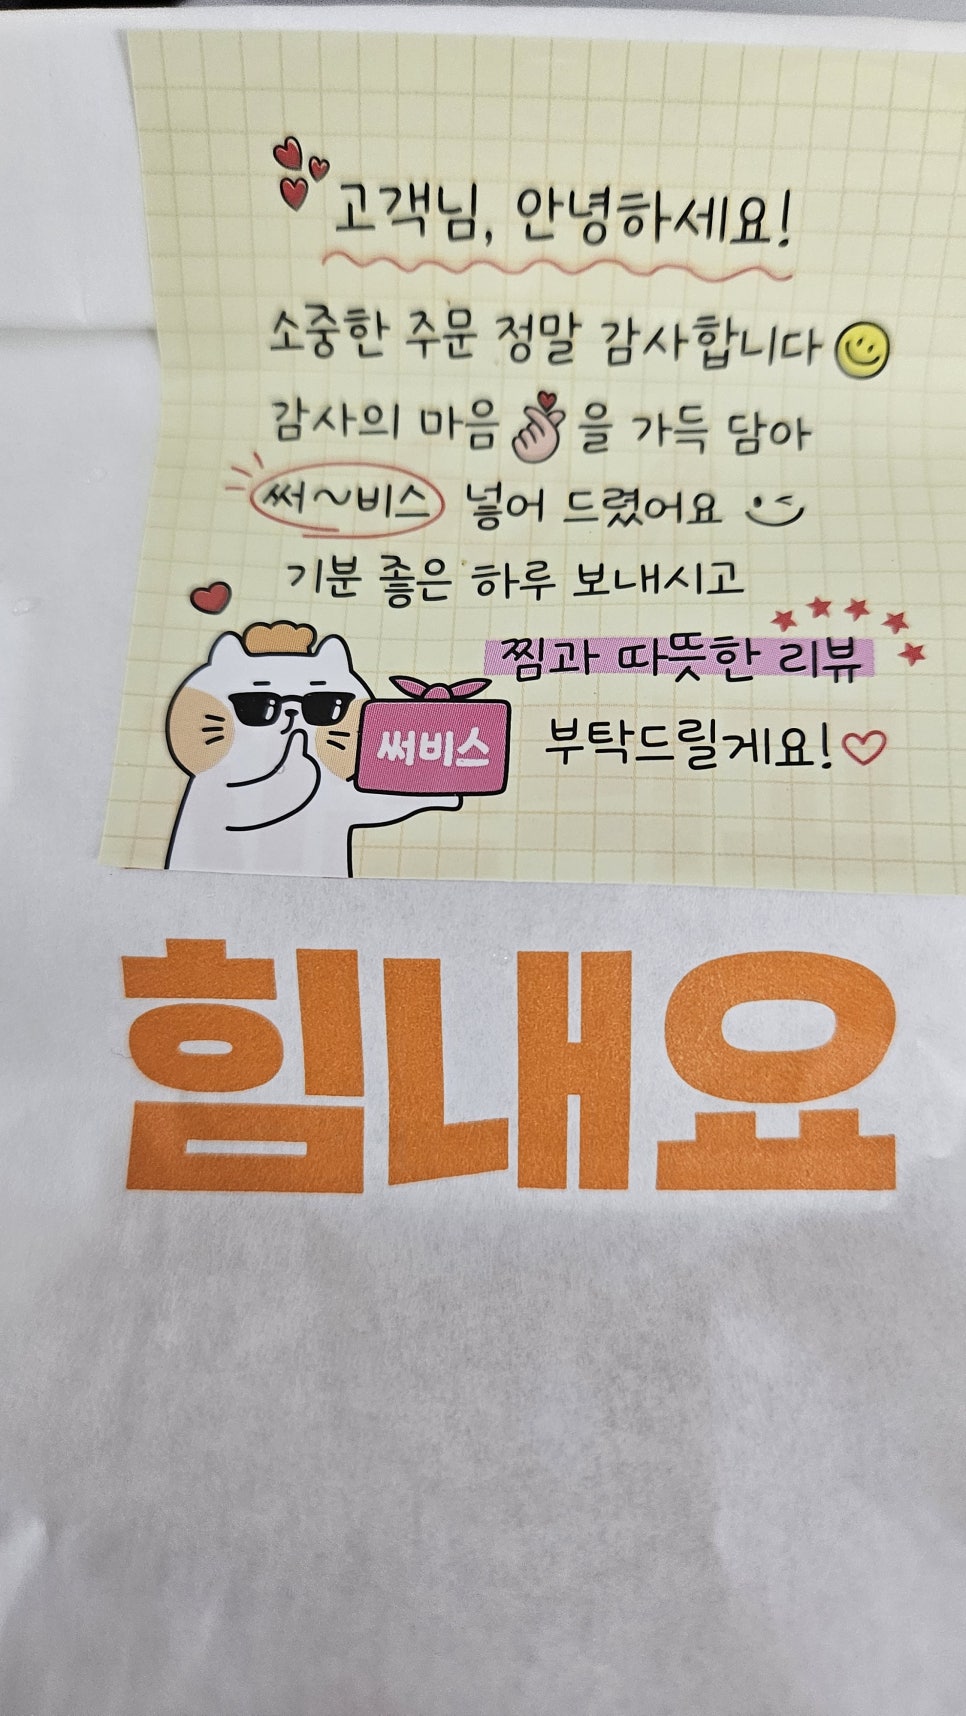 고객님, 안녕하세요!
소중한 주문 정말 감사합니다
감사의 마음을 가득 담아
써~비스 넣어 드렸어요
기분 좋은 하루 보내시고
찜과 따뜻한 리뷰
써비스
부탁드릴게요!
힘내요